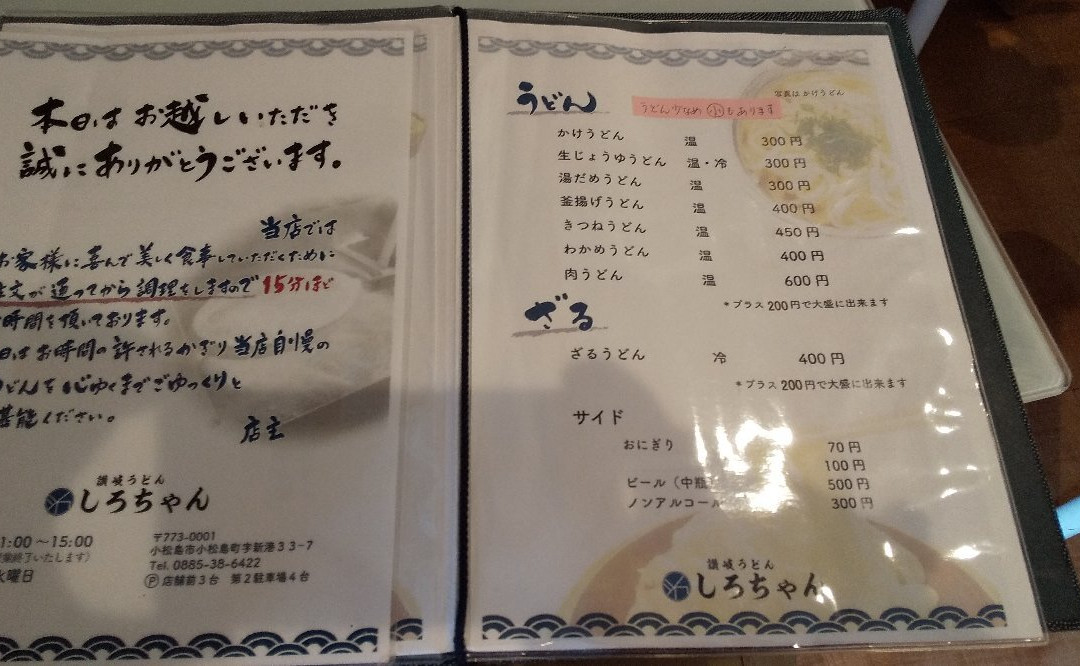 本日はお越しいただき
誠にありがとうございます。
当店では
お客様に喜んで美しく食事していただくために
注文が通ってから調理をしますので15分ほど
お時間を頂いております。
はお時間の許されるかぎり当店自慢の
うどんを心ゆくまでごゆっくりと
堪能ください。
店主
讃岐うどん
しろちゃん
1:00〜15:00
終了いたします)
水曜日
〒773-0001
小松島市小松島町字新港33-7
Tel. 0885-38-6422
Ⓟ店舗前3台 第2駐車場4台
うどん
うどん少なめ㊙もあります
写真はかけうどん
かけうどん 温 300円
生じょうゆうどん 温・冷 300円
湯だめうどん 温 300円
釜揚げうどん 温 400円
きつねうどん 温 450円
わかめうどん 温 400円
肉うどん 温 600円
*プラス200円で大盛に出来ます
ざる
ざるうどん 冷 400円
*プラス200円で大盛に出来ます
サイド
おにぎり 70円
100円
ビール(中瓶) 500円
ノンアルコール 300円
讃岐うどん
しろちゃん